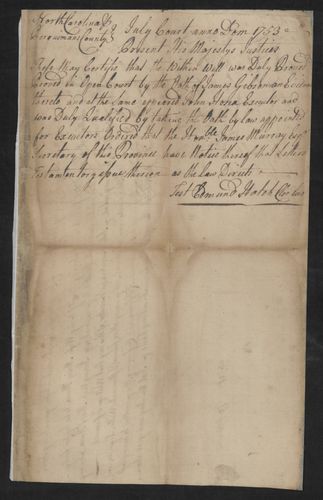 North Carolina Ss
Perquimans County
July Court anno Dom 1753
Present His Majestys Justices
These May Certifie that the Within Will was Duly Proved
in Open Court by the Oath of James Gibson an Evidence
thereto and at the Same appeared John Hosea Executor and
was Duly Qualified by taking the Oath by law appointed
for Executors Ordered that the Honble James Murray Esqr
Secretary of this Province have Notice thereof that Letters
Testamentory Issue thereon as the Law Directs
Test Edmund Hatch Cler Cur